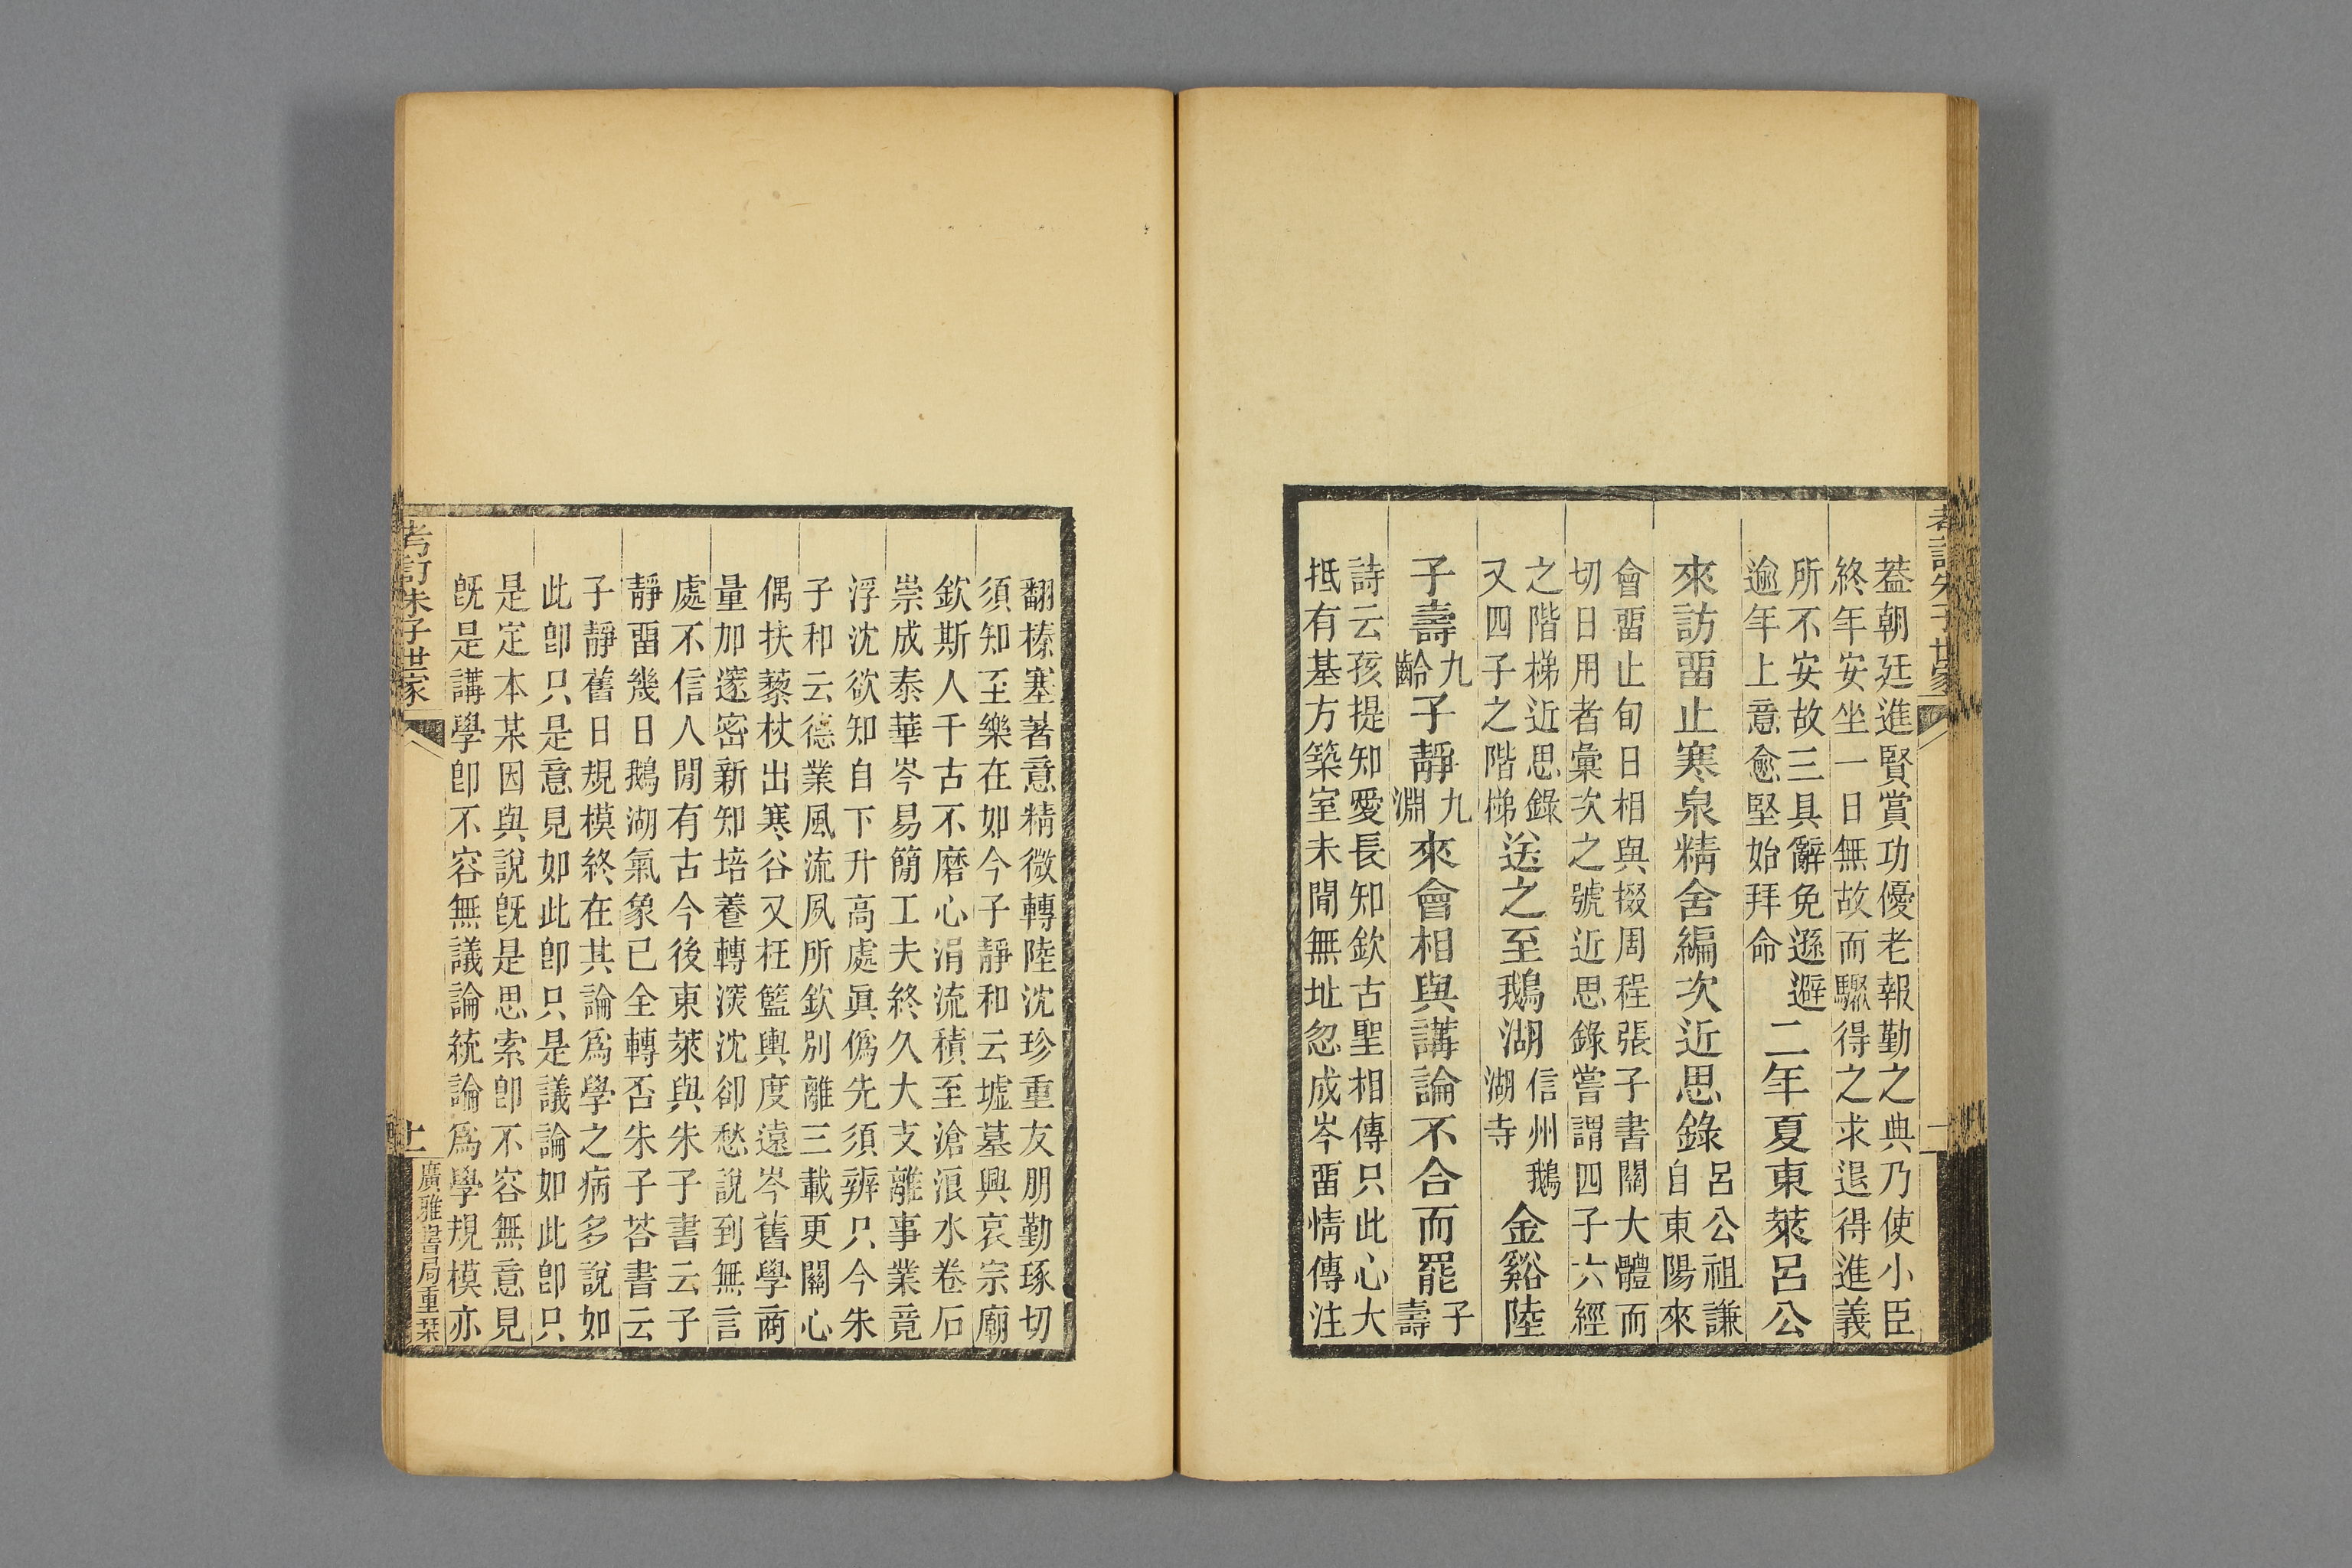 考訂朱子世家
葢朝廷進賢賞功優老報勤之典乃使小臣
終年安坐一日無故而驟得之求退得進義
所不安故三具辭免遜避
逾年上意愈堅始拜命
二年夏東萊呂公
來訪畱止寒泉精舍編次近思錄
呂公祖謙
自東陽來
會畱止旬日相與掇周程張子書關大體而
切日用者彙次之號近思錄嘗謂四子六經
之階梯近思錄
又四子之階梯
送之至鵝湖
信州鵝
湖寺
金谿陸
子壽
九
齡
子靜
九
淵
來會相與講論不合而罷
子
壽
詩云孩提知愛長知欽古聖相傳只此心大
抵有基方築室未聞無址忽成岑畱情傳注
翻榛塞著意精微轉陸沈珍重友朋勤琢切
須知至樂在如今子靜和云墟墓興哀宗廟
欽斯人千古不磨心涓流積至滄浪水卷石
崇成泰華岑易簡工夫終久大支離事業竟
浮沈欲知自下升高處眞僞先須辨只今朱
子和云德業風流夙所欽別離三載更關心
偶扶藜杖出寒谷又枉籃輿度遠岑舊學商
量加邃密新知培養轉深沈卻愁說到無言
處不信人閒有古今後東萊與朱子書云子
靜畱幾日鵝湖氣象已全轉否朱子荅書云
子靜舊日規模終在其論爲學之病多說如
此卽只是意見如此卽只是議論如此卽只
是定本某因與說旣是思索卽不容無意見
旣是講學卽不容無議論統論爲學規模亦
考訂朱子世家
廣雅書局重栞